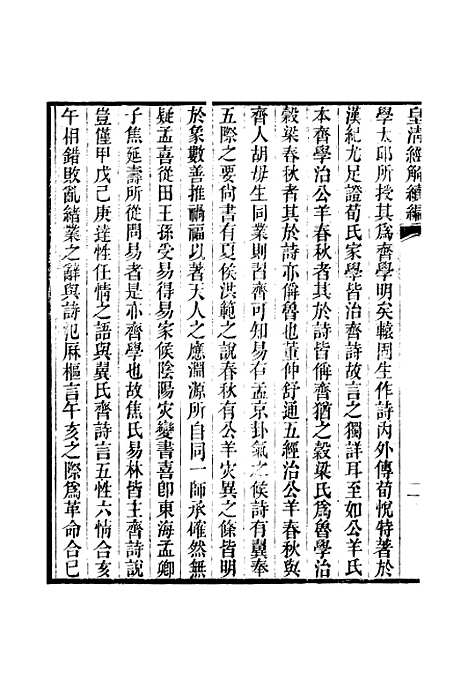 皇清經解續編
二
學太邱所授其爲齊學明矣轅固生作詩內外傳荀悅特著於
漢紀尤足證荀氏家學皆治齊詩故言之獨詳耳至如公羊氏
本齊學治公羊春秋者其於詩皆偁齊猶之穀梁氏爲魯學治
穀梁春秋者其於詩亦偁魯也董仲舒通五經治公羊春秋與
齊人胡毋生同業則習齊可知易有孟京卦氣之候詩有翼奉
五際之要尙書有夏侯洪範之說春秋有公羊灾異之條皆明
於象數善推禍福以著天人之應淵源所自同一師承確然無
疑孟喜從田王孫受易得易家候陰陽灾變書喜卽東海孟卿
子焦延壽所從問易者是亦齊學也故焦氏易林皆主齊詩說
豈僅甲戊己庚達性任情之語與翼氏齊詩言五性六情合亥
午相錯敗亂緒業之辭與詩氾厤樞言午亥之際爲革命合巳